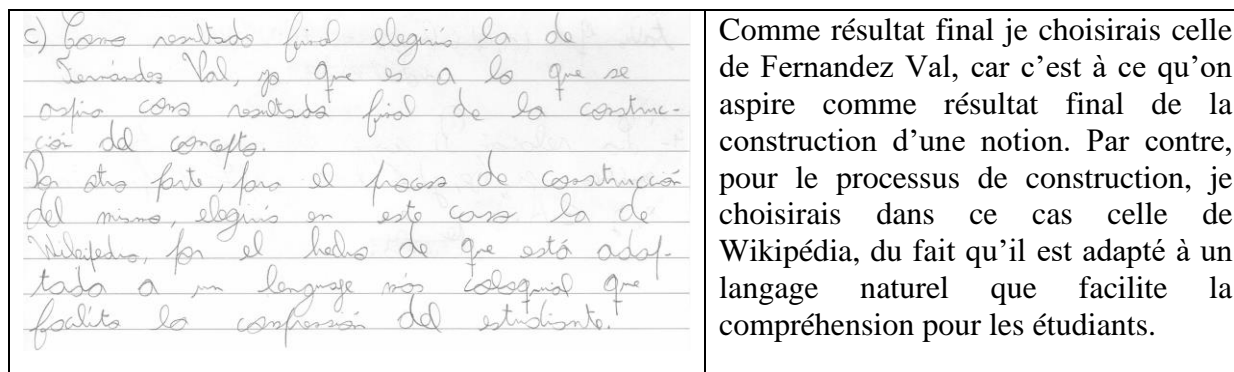 c) Como resultado final elegiría la de
Fernández Val, ya que es a lo que se
aspira como resultado final de la construc-
ción del concepto.
Por otra parte, para el proceso de construcción
del mismo, elegiría en este caso la de
Wikipedia, por el hecho de que está adap-
tada a un lenguaje más coloquial que
facilita la comprensión del estudiante.
Comme résultat final je choisirais celle
de Fernandez Val, car c’est à ce qu’on
aspire comme résultat final de la
construction d’une notion. Par contre,
pour le processus de construction, je
choisirais dans ce cas celle de
Wikipédia, du fait qu’il est adapté à un
langage naturel que facilite la
compréhension pour les étudiants.